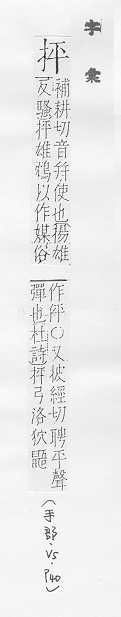 字彙
抨
補耕切音絣使也揚雄
反騷抨雄鴆以作媒俗
作𢫦〇又披經切聘平聲
彈也杜詩抨弓落狖鼯
(手部·V5·P40)